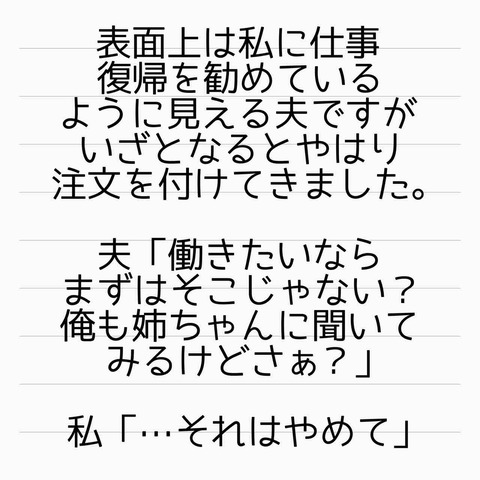 表面上は私に仕事
復帰を勧めている
ように見える夫ですが
いざとなるとやはり
注文を付けてきました。
夫「働きたいなら
まずはそこじゃない？
俺も姉ちゃんに聞いて
みるけどさぁ？」
私「…それはやめて」